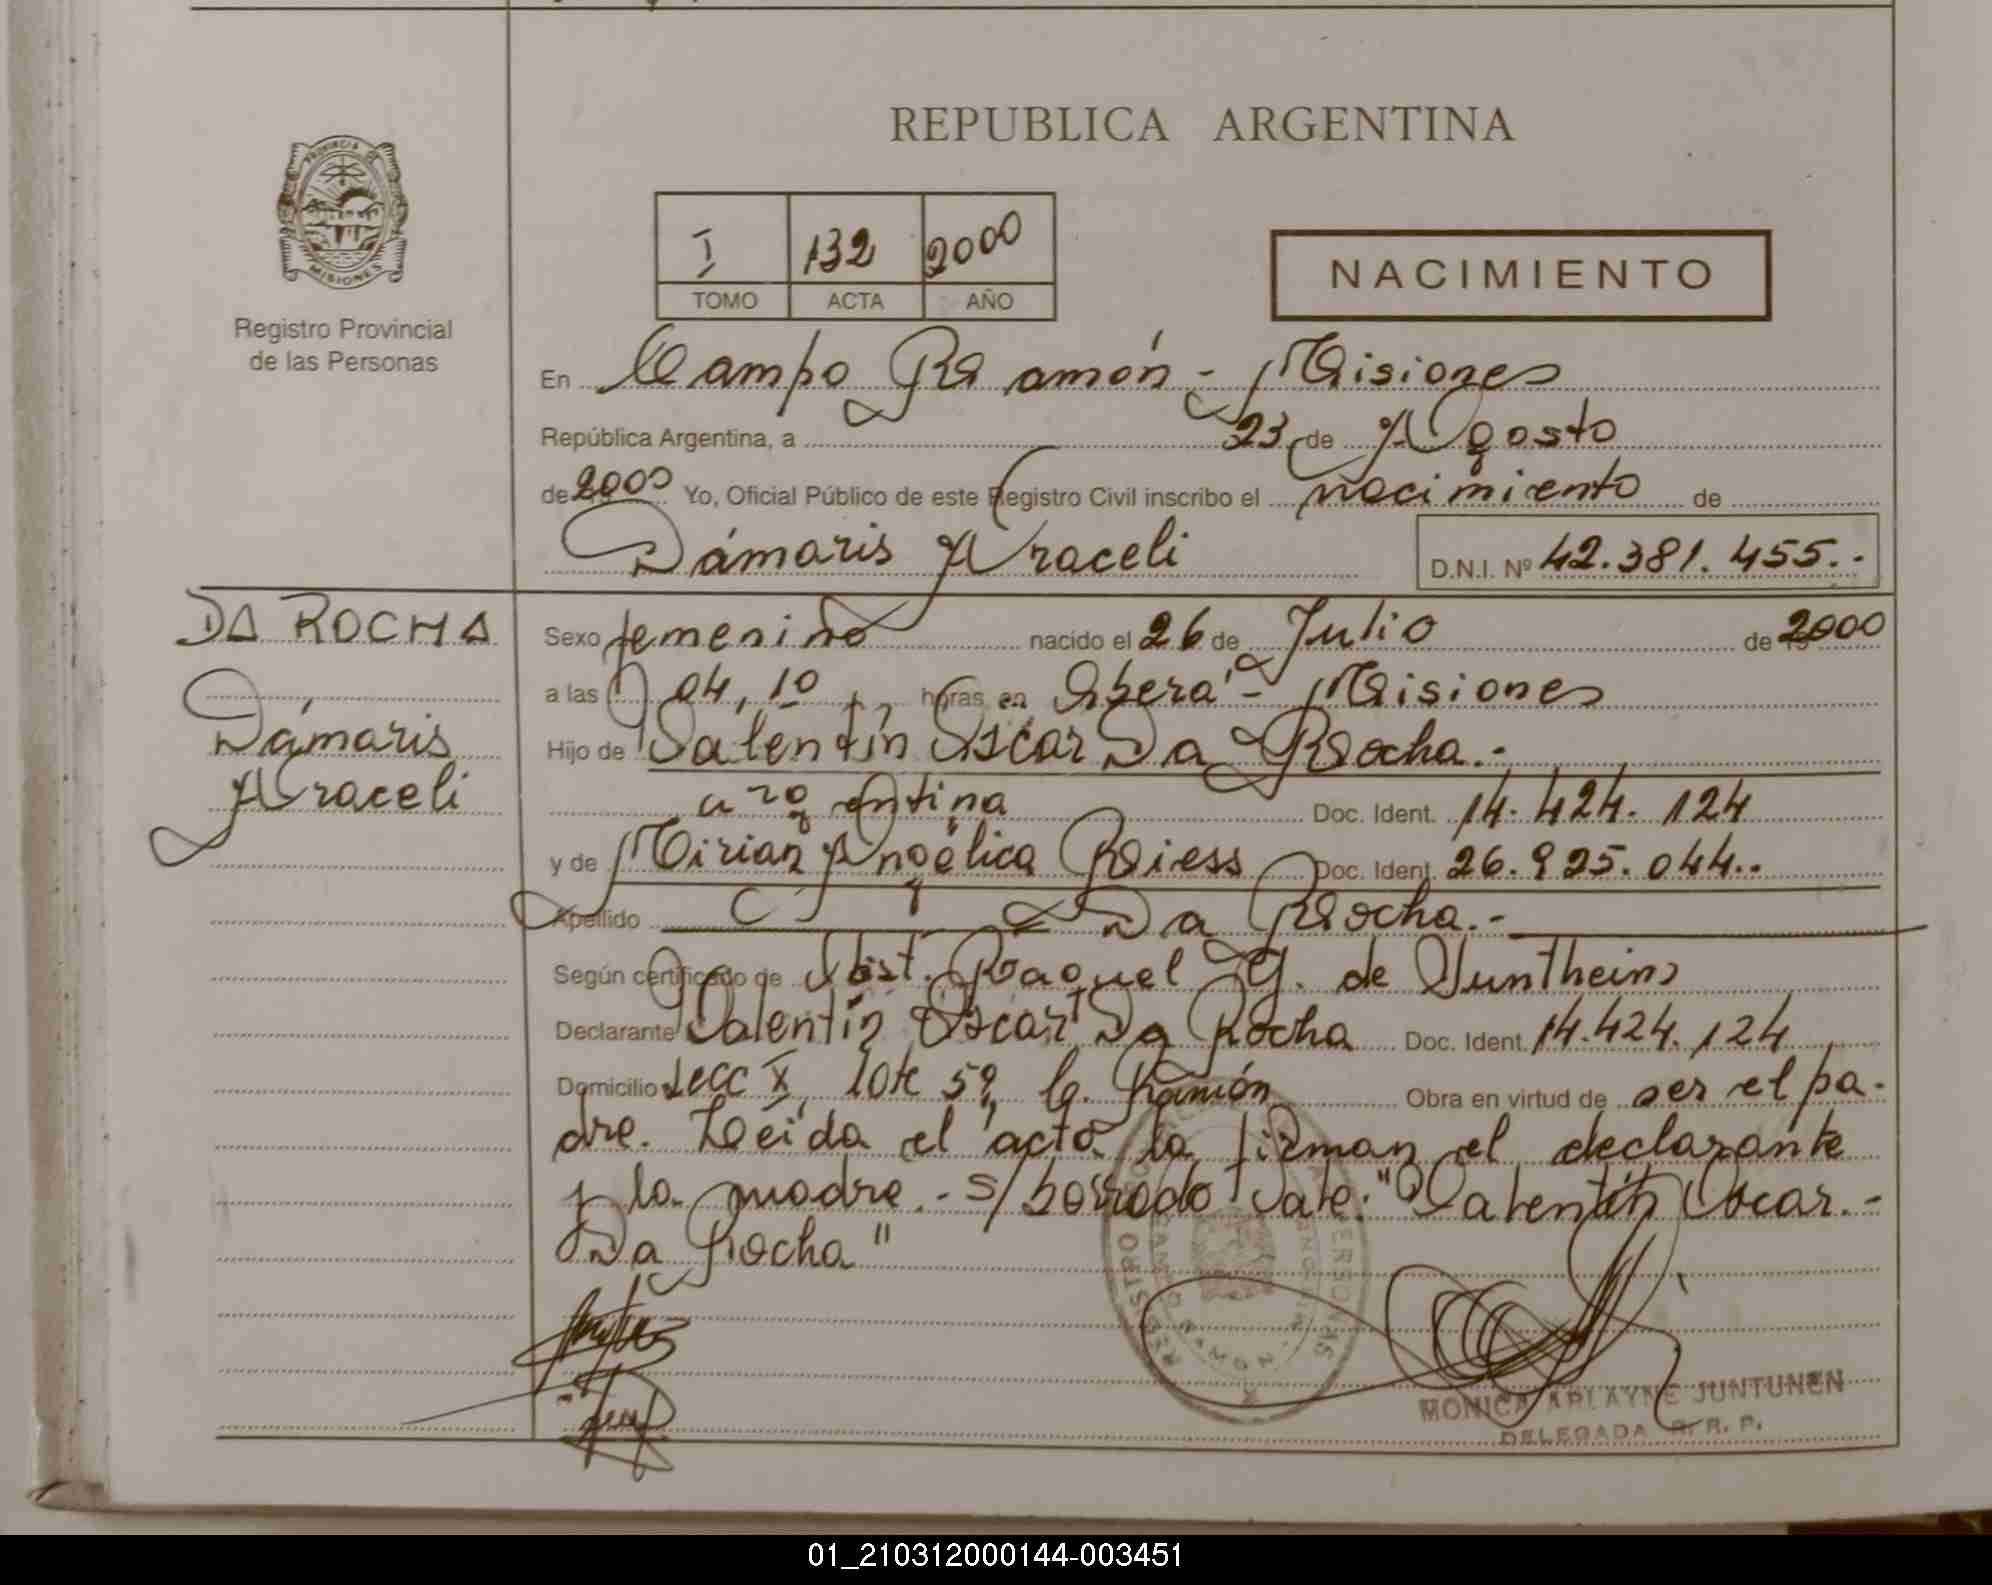 REPUBLICA ARGENTINA
PROVINCIA DE
MISIONES
Registro Provincial
de las Personas
I 132 2000
TOMO ACTA AÑO
NACIMIENTO
En Campo Ramón - Misiones
República Argentina, a 23 de Agosto
de 2000 Yo, Oficial Público de este Registro Civil inscribo el nacimiento de
Dámaris Araceli D.N.I. Nº 42.381.455.-
DA ROCHA
Dámaris
Araceli
Sexo femenino nacido el 26 de Julio de 2000
a las 04,10 horas en Oberá - Misiones
Hijo de Valentín Oscar Da Rocha.-
argentina Doc. Ident. 14.424.124
y de Mirian Angélica Reiess Doc. Ident. 26.925.044.-
Apellido Da Rocha.-
Según certificado de Obst. Raquel G. de
Declarante Valentín Oscar Da Rocha Doc. Ident. 14.424.124
Domicilio Secc X, lote 59, Ramón Obra en virtud de ser el pa-
dre. Leida el acta la firman el declarante
y la madre.- s/borrado Vale: "Valentín Oscar.-
Da Rocha"
MONICA ARLAYNE JUNTUNEN
DELEGADA R. R. P.
01_210312000144-003451